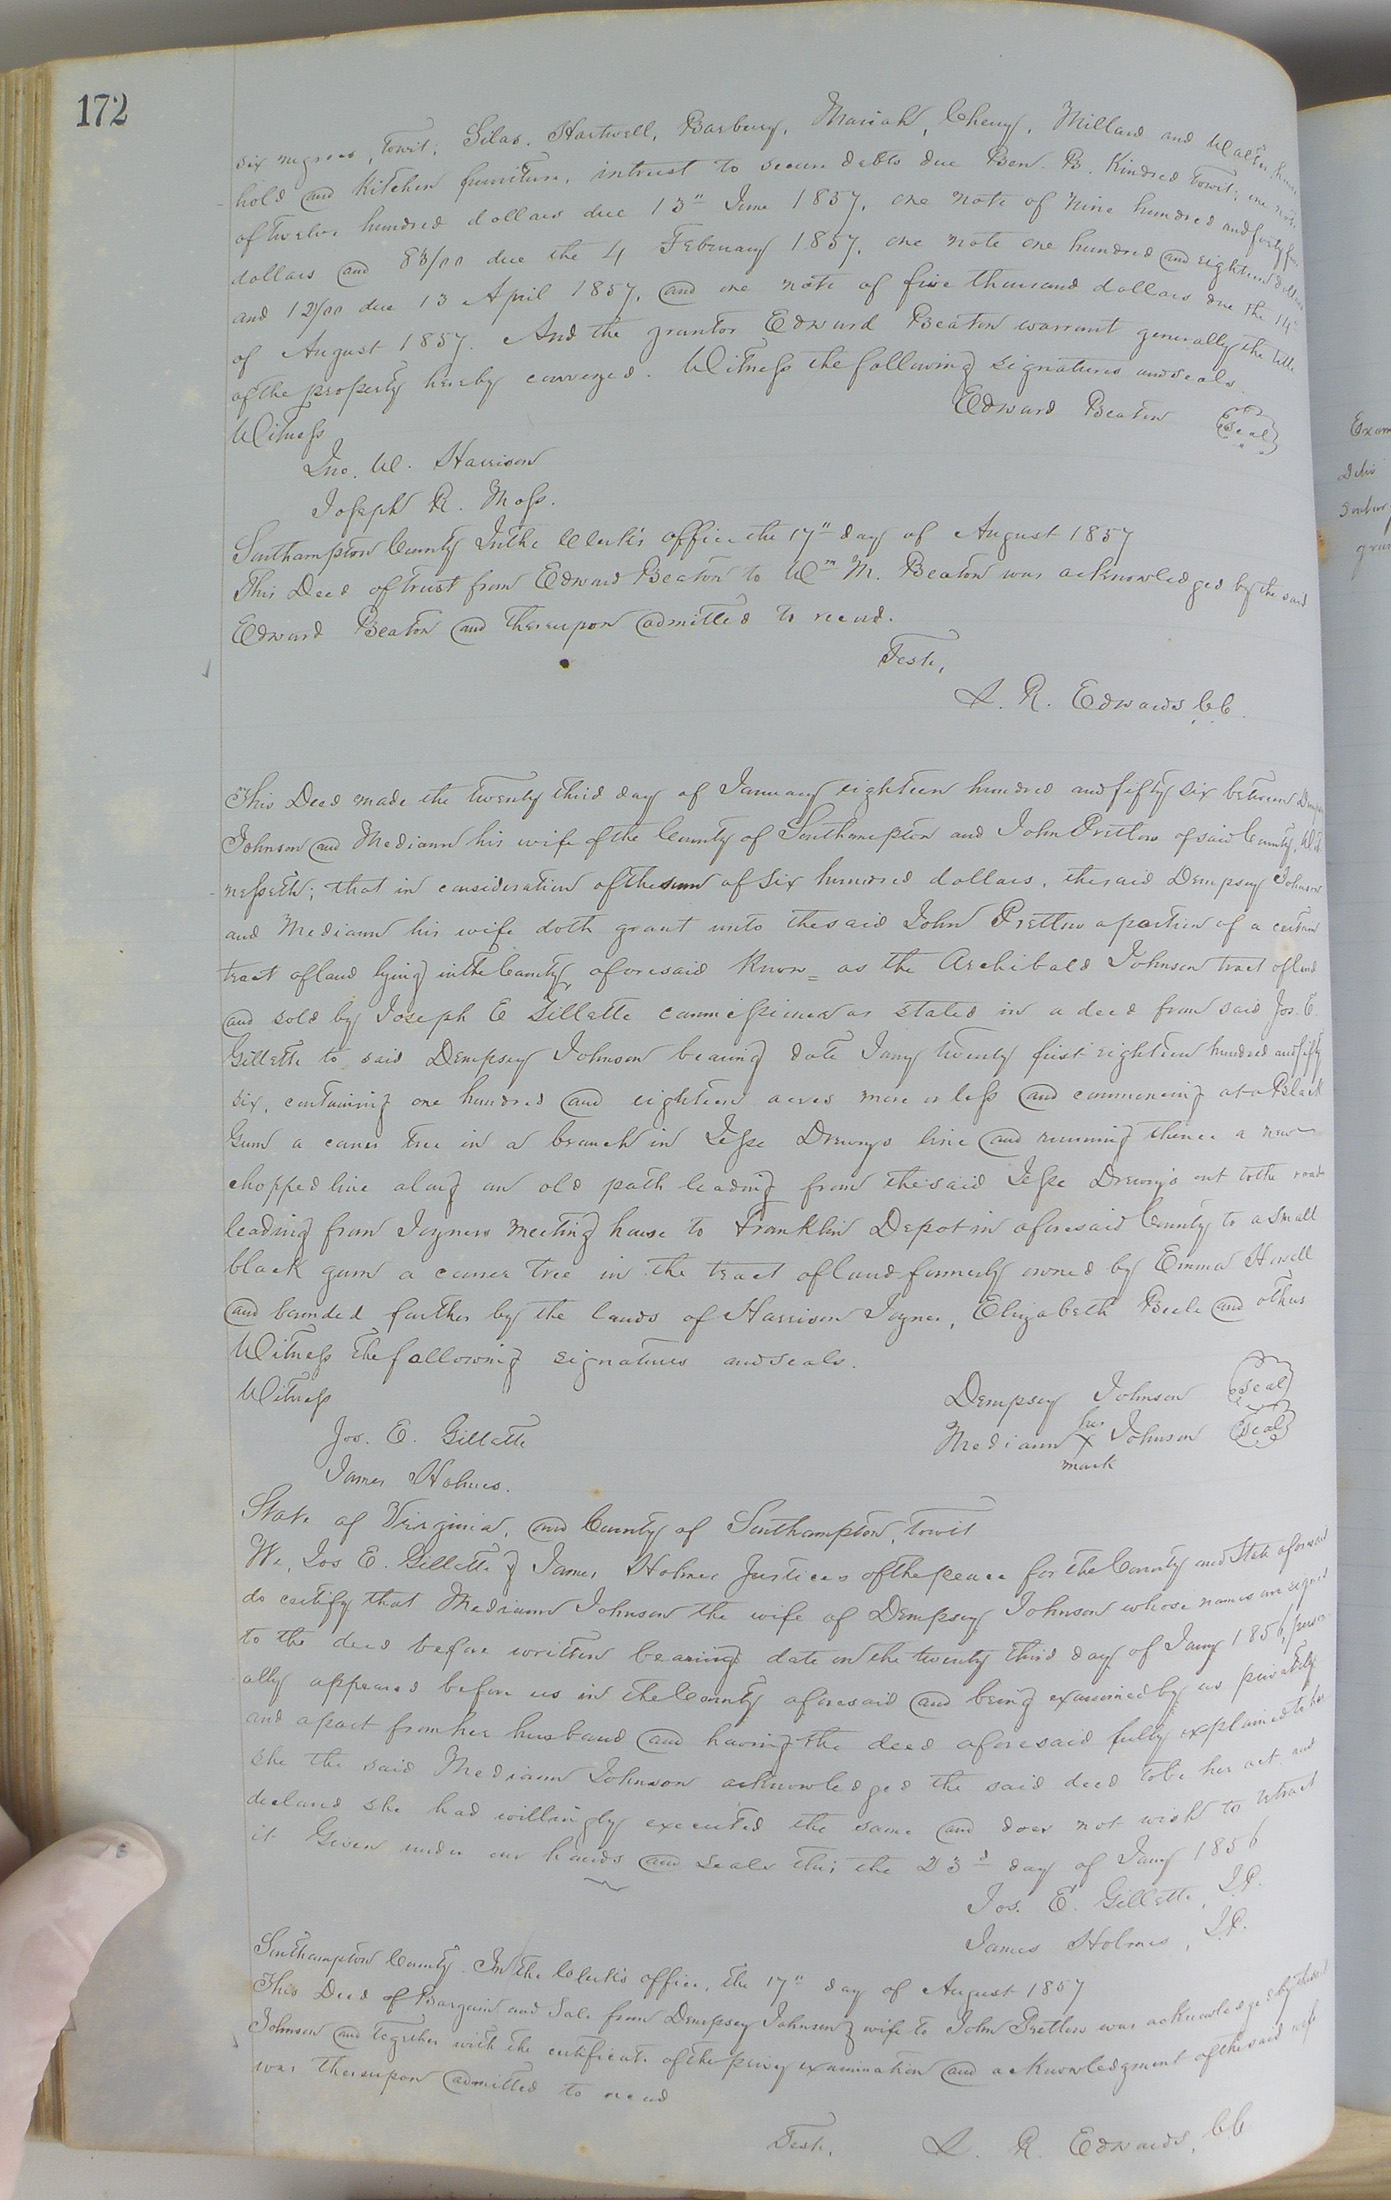 172
six negroes, Towit; Silas, Hartwell, Barbery, Mariah, Cheny, Millard and Walter, house
hold and kitchen furniture, intrust to secure debts due Ben. B. Kindred towit; one note
of twelve hundred dollars due 13" June 1857, one note of nine hundred and forty five
dollars and 83/00 due the 4 February 1857, one note one hundred and eighteen dollars
and 12/00 due 13 April 1857, and one note of five thousand dollars due the 14"
of August 1857. And the grantor Edward Beaton warrant generally the title
of the property hereby conveyed. Witness the following signatures and seals.
Edward Beaton Seal
Witness
Jno. W. Harrison
Joseph R. Moss.
Southampton County In the Clerk's office the 17" day of August 1857
This Deed of trust from Edward Beaton to Wm M. Beaton was acknowledged by the said
Edward Beaton and thereupon admitted to record.
Teste,
L. R. Edwards, CC.
This Deed made the twenty third day of January eighteen hundred and fifty six between Dempsey
Johnson and Mediann his wife of the County of Southampton and John Pretlow of said County, Wit
nesseth; that in consideration of the sum of six hundred dollars, the said Dempsey Johnson
and Mediann his wife doth grant unto the said John Pretlow a portion of a certain
tract of land lying in the County aforesaid know= as the Archibald Johnson tract of land
and sold by Joseph E Gillette commissioner as stated in a deed from said Jos. E.
Gillette to said Dempsey Johnson bearing date Jany twenty first eighteen hundred and fifty
six, containing one hundred and eighteen acres more or less and commencing at a Black
Gum a corner tree in a branch in Jesse Drewrys line and running thence a new
chopped line along an old path leading from the said Jesse Drewry's out to the road
leading from Joyners meeting house to Franklin Depot in aforesaid County to a small
black gum a corner tree in the tract of land formerly owned by Emma Howell
and bounded further by the lands of Harrison Joyner, Elizabeth Beele and others
Witness the following signatures and seals.
Dempsey Johnson Seal
Witness
her
Mediann X Johnson Seal
mark
Jos. E. Gillette
James Holmes.
State of Virginia, and County of Southampton, towit
We, Jos E. Gillette & James Holmes Justices of the peace for the County and State aforesaid
do certify that Mediann Johnson the wife of Dempsey Johnson whose names are signed
to the deed before written bearing date on the twenty third day of Jany 1856, person
ally appeared before us in the County aforesaid and being examined by us privately
and apart from her husband and having the deed aforesaid fully explained to her
she the said Mediann Johnson acknowledged the said deed to be her act and
declared she had willingly executed the same and does not wish to retract
it Given under our hands and seals this the 23d day of Jany 1856
Jos. E. Gillette, J.P.
James Holmes, J.P.
Southampton County. In the Clerk's office, the 17" day of August 1857
This Deed of Bargain and Sale from Dempsey Johnson & wife to John Pretlow was acknowledged by the said
Johnson and together with the certificate of the privy examination and acknowledgment of the said wife
was thereupon admitted to record
Teste,
L. R. Edwards, CC
Exam